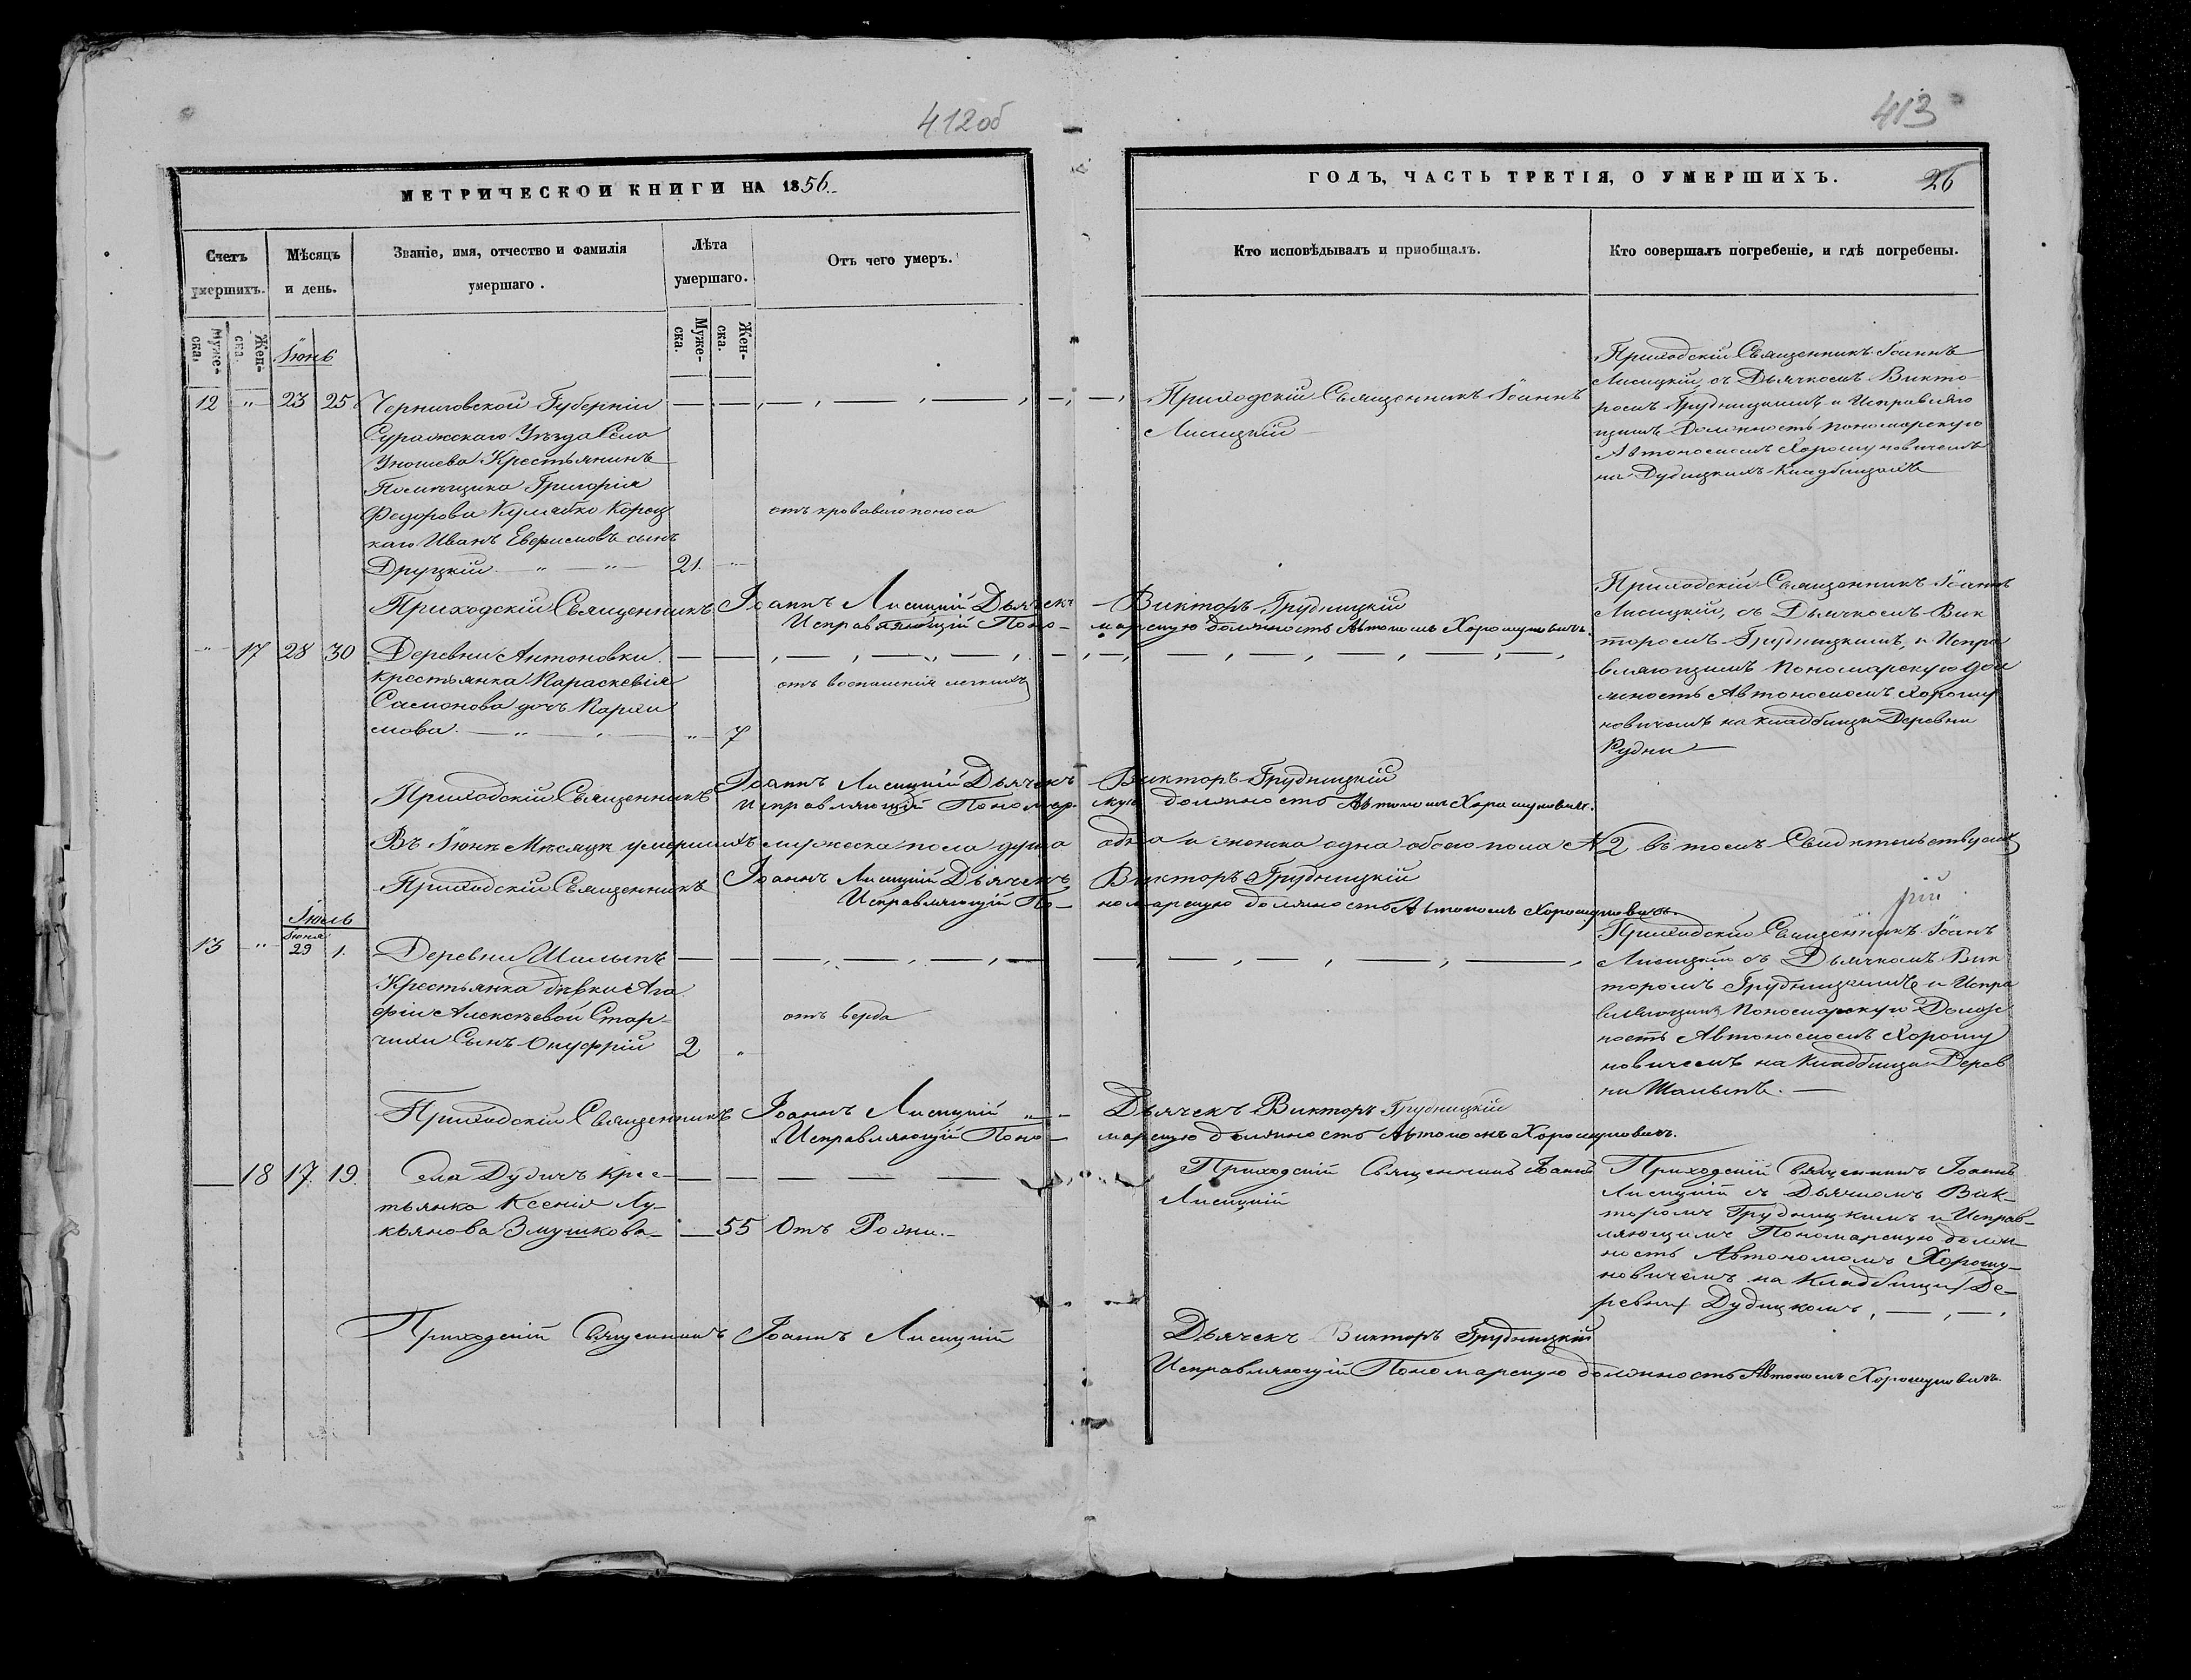 412об
413
МЕТРИЧЕСКОИ КНИГИ НА 1856.
ГОДЪ, ЧАСТЬ ТРЕТІЯ, О УМЕРШИХЪ.
26
Счетъ умершихъ.
Мѣсяцъ и день.
Званіе, имя, отчество и фамилія умершаго.
Лѣта умершаго.
Отъ чего умеръ.
Кто исповѣдывалъ и приобщалъ.
Кто совершалъ погребеніе, и гдѣ погребены.
Муже-ска.
Жен-ска.
Муже-ска.
Жен-ска.
Іюнь
12 " 23 25
Черниговской Губерніи
Суражскаго Уѣзда Села
Крестьянинъ
Помѣщика Григорія
Федорова Кулябко Корец
каго Иванъ сынъ
Друцкій 21.
отъ кроваваго поноса
Приходскій Священникъ Іоаннъ
Лисицкій
Приходскій Священникъ Іоаннъ
Лисицкій съ Дьячкомъ Викто
ромъ Грудницкимъ и Исправляю
щимъ Должность пономарскую
Автономомъ Хорошуновичемъ
на Дудицкихъ Кладбищахъ
Приходскій Священникъ Іоаннъ Лисицкій Дьячекъ Викторъ Грудницкій
Исправляющій Пономарскую должность Автономъ Хорошуновичъ.
" 17 28 30
Деревни Антоновки
крестьянка Параскевія
Самонова дочь
7
отъ воспаленія легкихъ
Приходскій Священникъ Іоаннъ
Лисицкій, съ Дьячкомъ Вик
торомъ Грудницкимъ, и Испра
вляющимъ Пономарскую дол
жность Автономомъ Хорошу
новичемъ на кладбищи Деревни
Рудни
Приходскій Священникъ Іоаннъ Лисицкій Дьячекъ Викторъ Грудницкій
Исправляющій Пономарскую должность Автономъ Хорошуновичъ.
Въ Іюнѣ Мѣсяцѣ умершихъ мужеска пола душа одна и женска одна обоего пола 2 въ томъ Свидѣтельствуемъ
Приходскій Священникъ Іоаннъ Лисицкій Дьячекъ Викторъ Грудницкій
Исправляющій Пономарскую должность Автономъ Хорошуновичъ.
Іюль
Іюня
13 " 29 1.
Деревни
Крестьянка дѣвки Ага
фіи Алексѣевой Стар
чихи Сынъ Онуфрій 2 "
отъ верда
Приходскій Священникъ Іоанъ
Лисицкій съ Дьячкомъ Вик
торомъ Грудницкимъ и Испра
вляющимъ Пономарскую Долж
ность Автономомъ Хорошу
новичемъ на Кладбищи Дерев
ни
Приходскій Священникъ Іоаннъ Лисицкій Дьячекъ Викторъ Грудницкій
Исправляющій Пономарскую должность Автономъ Хорошуновичъ.
18 17. 19.
Села Дудичъ крес-
тьянка Ксенія Лу-
кьянова Змушкова 55
Отъ Рожи.
Приходскій Священникъ Іоаннъ
Лисицкій
Приходскій Священникъ Іоаннъ
Лисицкій съ Дьячкомъ Вик-
торомъ Грудницкимъ и Исправ-
ляющимъ Пономарскую долж-
ность Автономомъ Хорошу-
новичемъ на Кладбищи Де-
ревни Дудицкомъ
Приходскій Священникъ Іоаннъ Лисицкій
Дьячекъ Викторъ Грудницкій
Исправляющій Пономарскую должность Автономъ Хорошуновичъ.